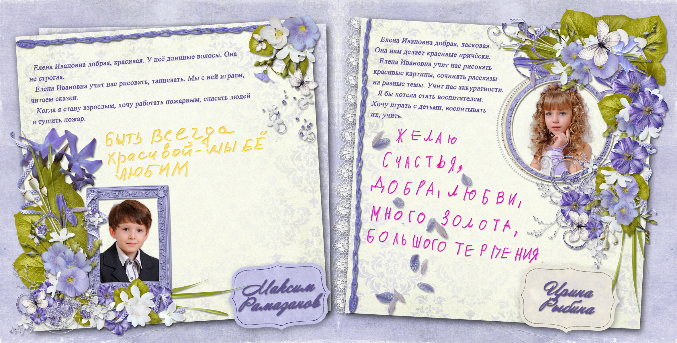 Елена Ивановна добрая, красивая. У неё длинные волосы. Она
не строгая.
Елена Ивановна учит нас рисовать, танцевать. Мы с ней играем,
читаем сказки.
Когда я стану взрослым, хочу работать пожарным, спасать людей
и тушить пожар.
БЫТЬ ВСЕГДА
КРАСИВОЙ-МЫ ЕЁ
ЛЮБИМ
Максим
Рамазанов
Елена Ивановна добрая, ласковая.
Она нам делает красивые причёски.
Елена Ивановна учит нас рисовать
красивые картины, сочинять рассказы
на разные темы. Учит нас аккуратности.
Я бы хотела стать воспитателем.
Хочу играть с детьми, воспитывать
их, учить.
ЖЕЛАЮ
СЧАСТЬЯ,
ДОБРА, ЛЮБВИ,
МНОГО ЗОЛОТА,
БОЛЬШОГО ТЕРПЕНИЯ
Ирина
Рыбина